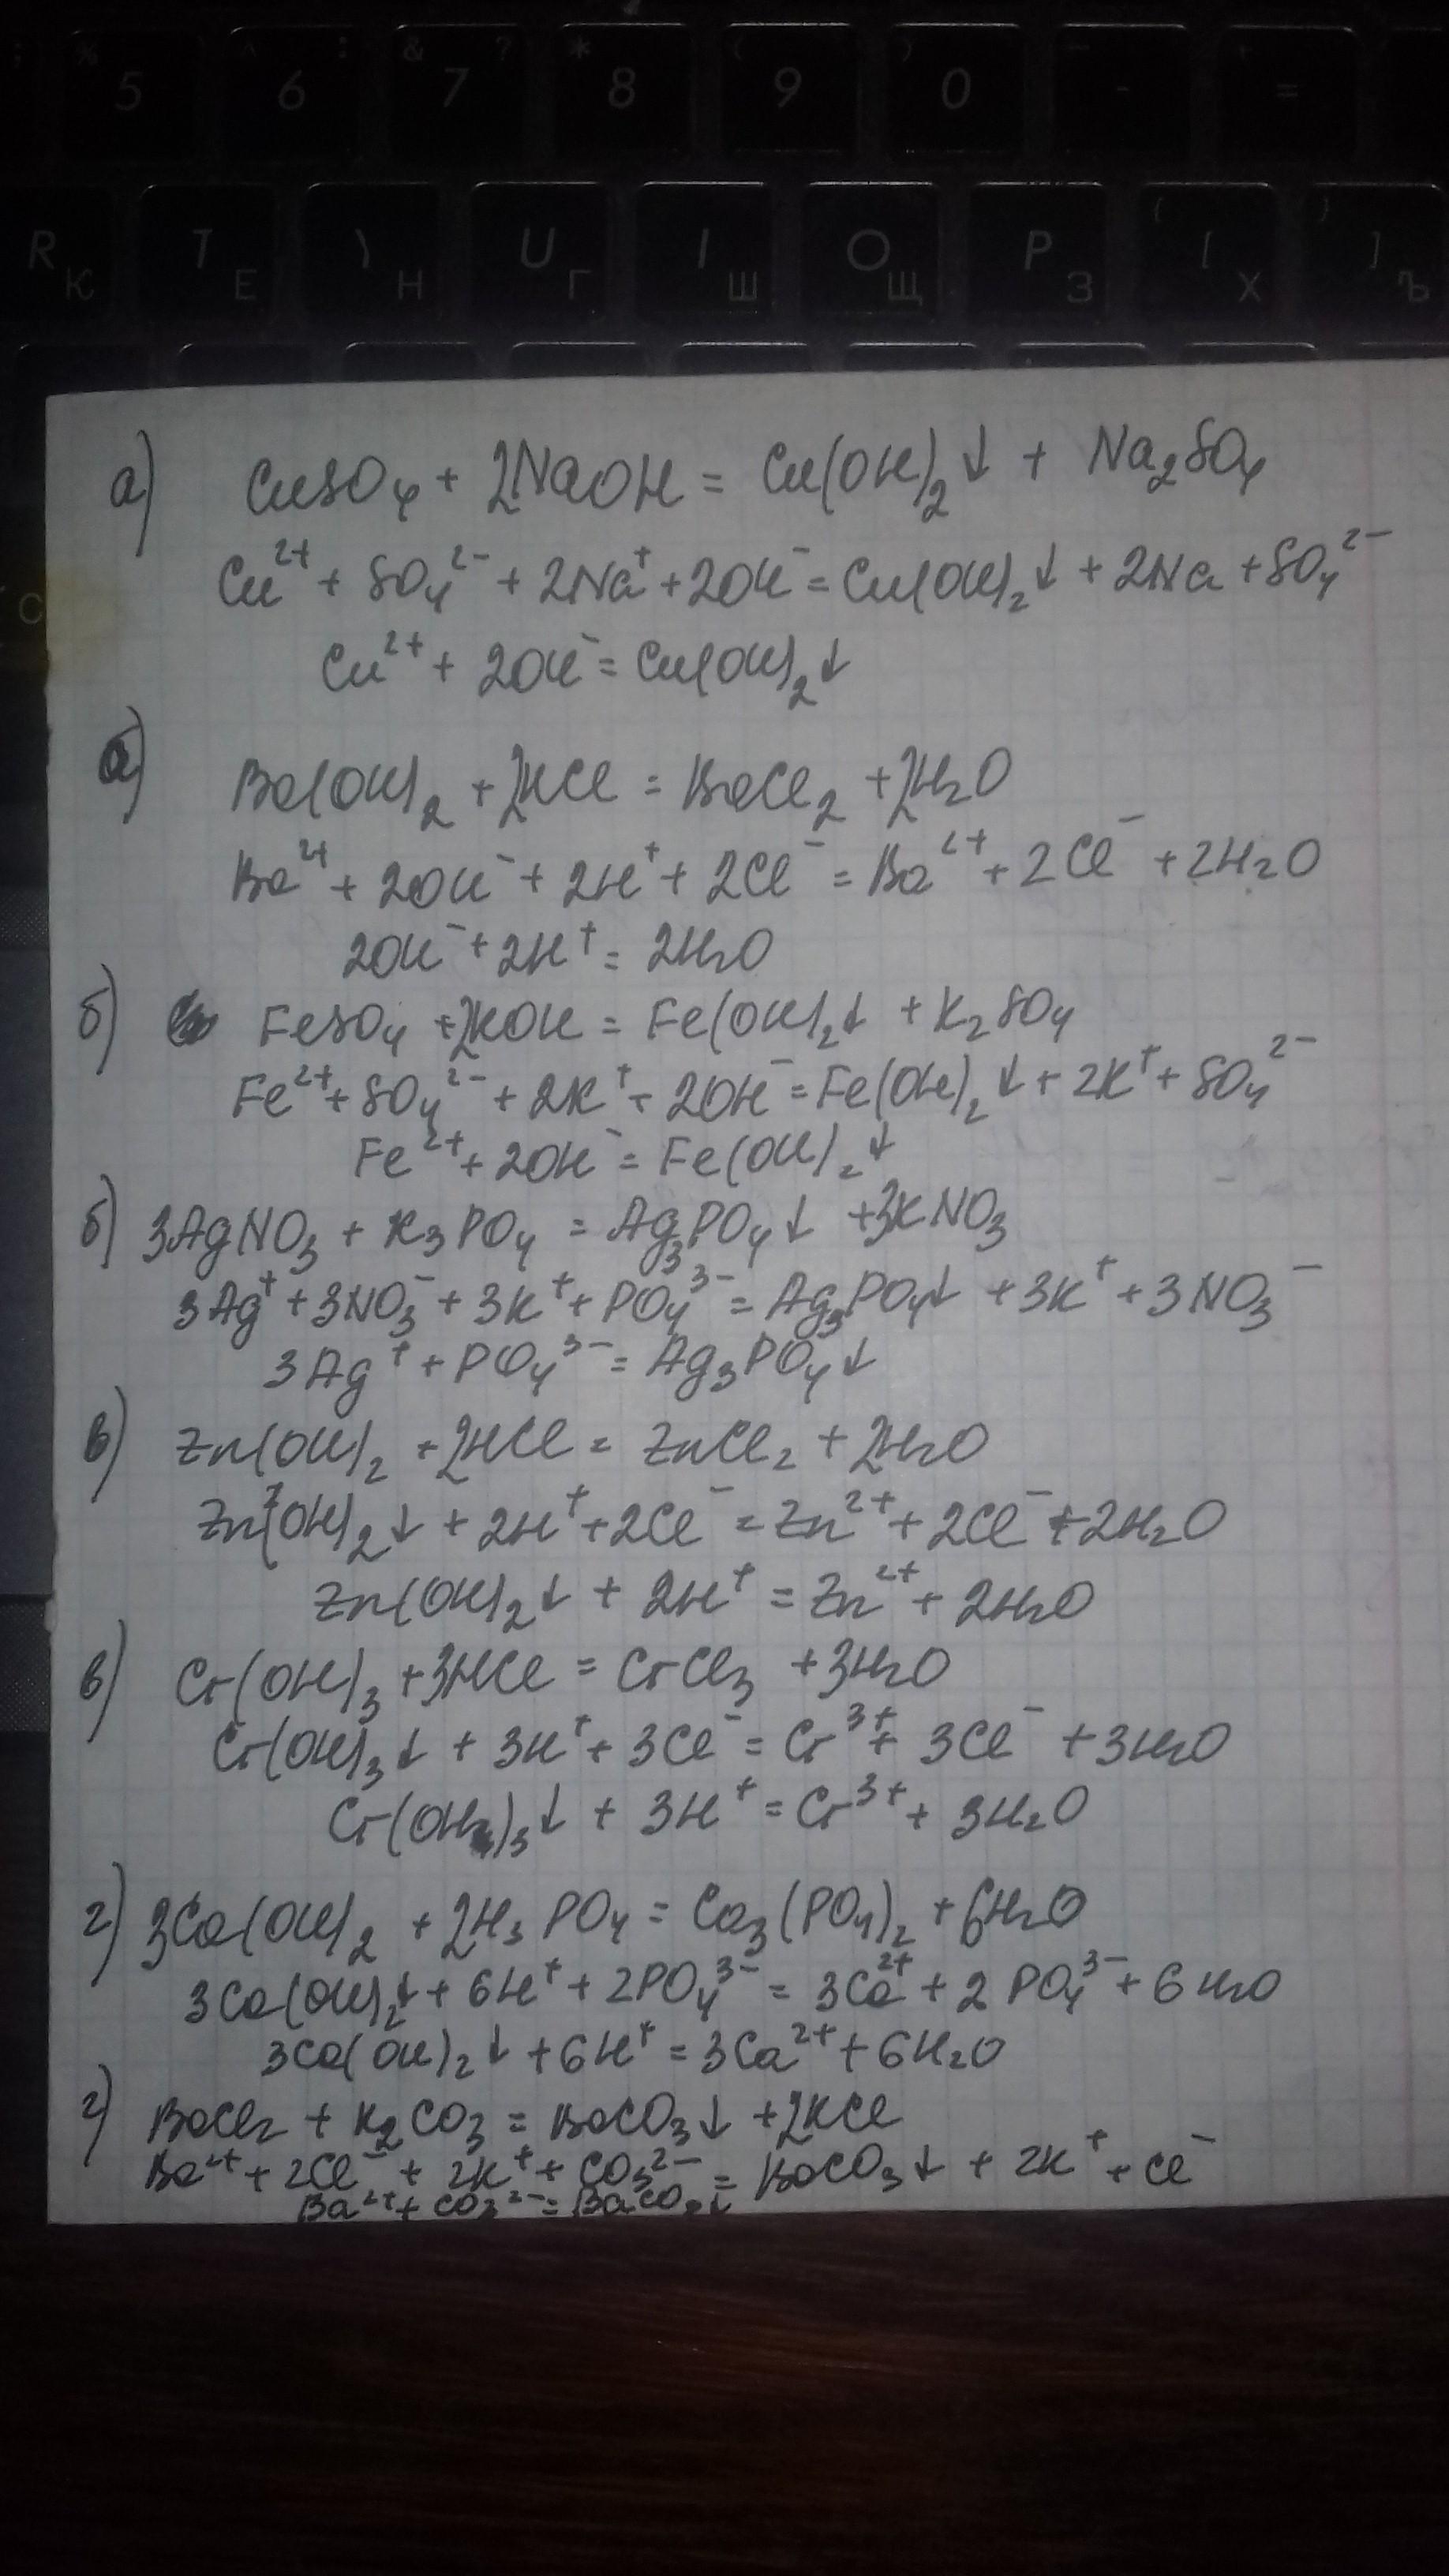 % ^ : & ? * ( ) - +
5 6 7 8 9 0 - =
R К T Е ) Н U Г I Ш O Щ P З { [ Х } ] Ъ
С
а) CuSO₄ + 2NaOH = Cu(OH)₂↓ + Na₂SO₄
Cu²⁺ + SO₄²⁻ + 2Na⁺ + 2OH⁻ = Cu(OH)₂↓ + 2Na + SO₄²⁻
Cu²⁺ + 2OH⁻ = Cu(OH)₂↓
а) Ba(OH)₂ + 2HCl = BaCl₂ + 2H₂O
Ba²⁺ + 2OH⁻ + 2H⁺ + 2Cl⁻ = Ba²⁺ + 2Cl⁻ + 2H₂O
2OH⁻ + 2H⁺ = 2H₂O
б) FeSO₄ + 2KOH = Fe(OH)₂↓ + K₂SO₄
Fe²⁺ + SO₄²⁻ + 2K⁺ + 2OH⁻ = Fe(OH)₂↓ + 2K⁺ + SO₄²⁻
Fe²⁺ + 2OH⁻ = Fe(OH)₂↓
б) 3AgNO₃ + K₃PO₄ = Ag₃PO₄↓ + 3KNO₃
3Ag⁺ + 3NO₃⁻ + 3K⁺ + PO₄³⁻ = Ag₃PO₄↓ + 3K⁺ + 3NO₃⁻
3Ag⁺ + PO₄³⁻ = Ag₃PO₄↓
в) Zn(OH)₂ + 2HCl = ZnCl₂ + 2H₂O
Zn(OH)₂↓ + 2H⁺ + 2Cl⁻ = Zn²⁺ + 2Cl⁻ + 2H₂O
Zn(OH)₂↓ + 2H⁺ = Zn²⁺ + 2H₂O
в) Cr(OH)₃ + 3HCl = CrCl₃ + 3H₂O
Cr(OH)₃↓ + 3H⁺ + 3Cl⁻ = Cr³⁺ + 3Cl⁻ + 3H₂O
Cr(OH)₃↓ + 3H⁺ = Cr³⁺ + 3H₂O
г) 3Ca(OH)₂ + 2H₃PO₄ = Ca₃(PO₄)₂ + 6H₂O
3Ca(OH)₂↓ + 6H⁺ + 2PO₄³⁻ = 3Ca²⁺ + 2PO₄³⁻ + 6H₂O
3Ca(OH)₂↓ + 6H⁺ = 3Ca²⁺ + 6H₂O
г) BaCl₂ + K₂CO₃ = BaCO₃↓ + 2KCl
Ba²⁺ + 2Cl⁻ + 2K⁺ + CO₃²⁻ = BaCO₃↓ + 2K⁺ + Cl⁻
Ba²⁺ + CO₃²⁻ = BaCO₃↓